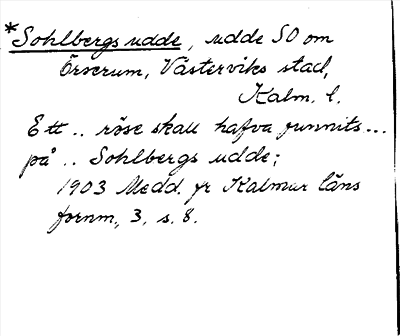 *Sohlbergs udde, udde SO om
Örserum, Västerviks stad,
Kalm. l.
Ett .. röse skall hafva funnits...
på .. Sohlbergs udde;
1903 Medd. fr Kalmar läns
fornm., 3, s. 8.